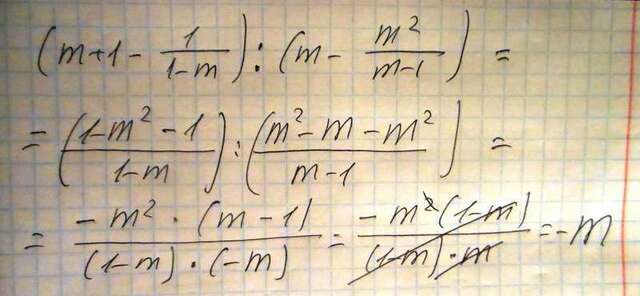 (m+1-\frac{1}{1-m}):(m-\frac{m^2}{m-1})=
=(\frac{1-m^2-1}{1-m}):(\frac{m^2-m-m^2}{m-1})=
=\frac{-m^2·(m-1)}{(1-m)·(-m)}=\frac{-m^2(1-m)}{(1-m)·m}=-m